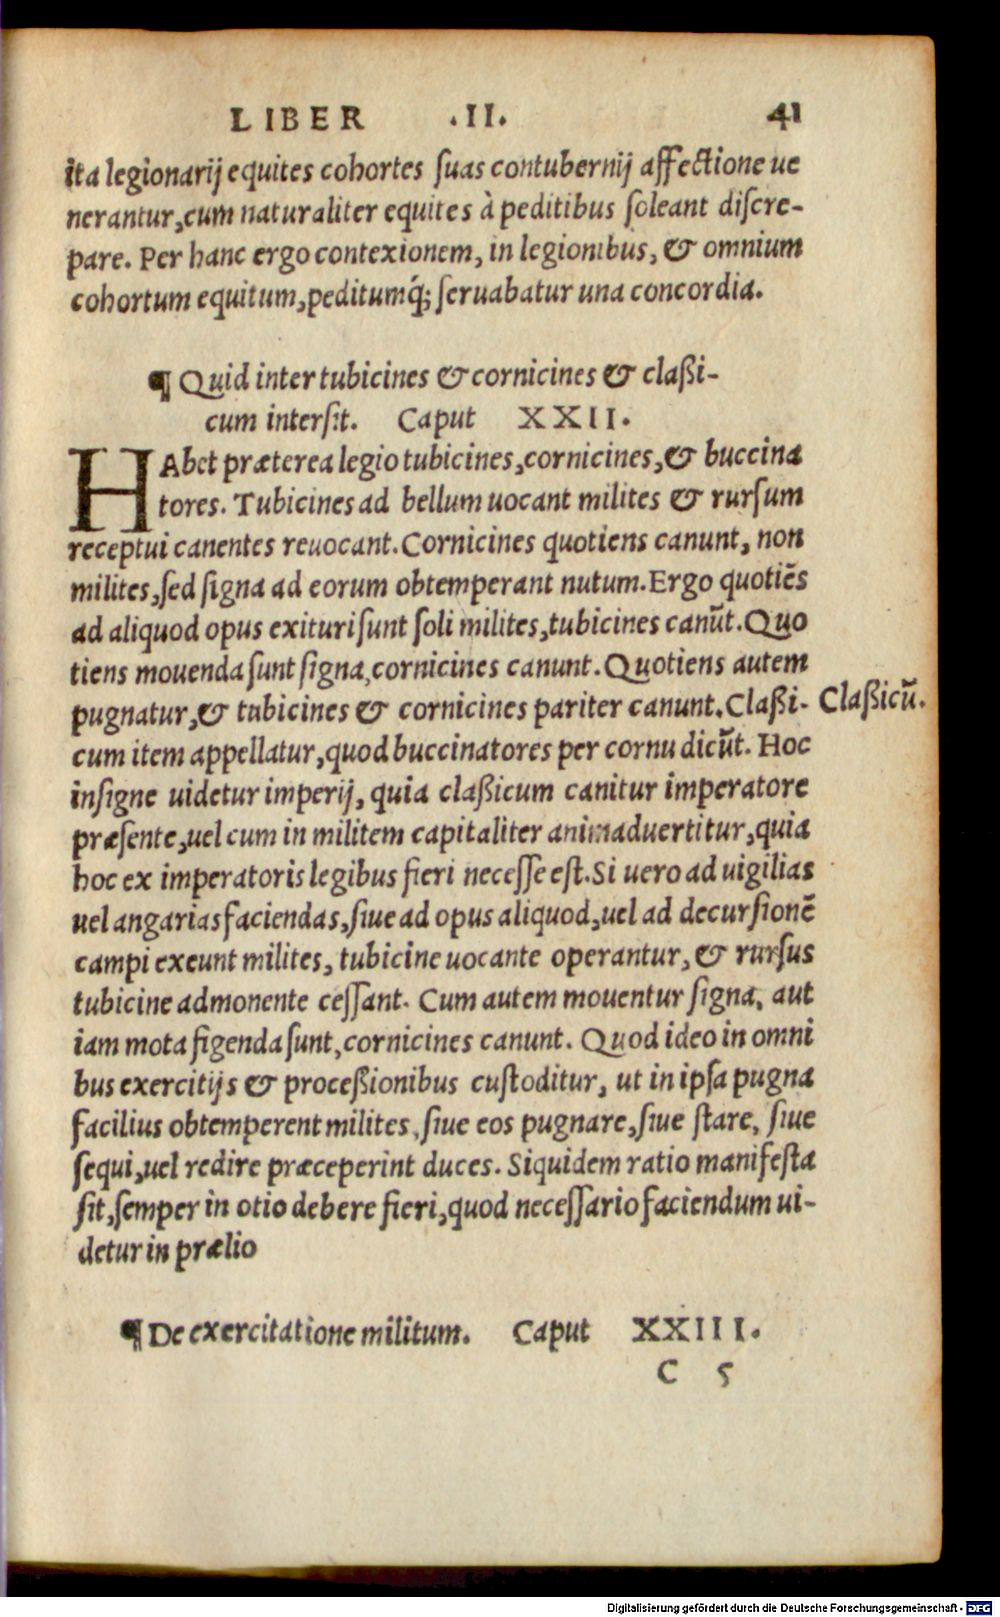 LIBER .II. 41
ita legionarij equites cohortes ſuas contubernij affectione ue
nerantur, cum naturaliter equites à peditibus ſoleant diſcre-
pare. Per hanc ergo contexionem, in legionibus, & omnium
cohortum equitum, peditumq́; ſeruabatur una concordia.
¶ Quid inter tubicines & cornicines & claßi-
cum interſit. Caput XXII.
HAbet præterea legio tubicines, cornicines, & buccina
tores. Tubicines ad bellum uocant milites & rurſum
receptui canentes reuocant. Cornicines quotiens canunt, non
milites, ſed ſigna ad eorum obtemperant nutum. Ergo quotiẽs
ad aliquod opus exituri ſunt ſoli milites, tubicines canũt. Quo
tiens mouenda ſunt ſigna, cornicines canunt. Quotiens autem
pugnatur, & tubicines & cornicines pariter canunt. Claßi- Claßicũ.
cum item appellatur, quod buccinatores per cornu dicũt. Hoc
inſigne uidetur imperij, quia claßicum canitur imperatore
præſente, uel cum in militem capitaliter animaduertitur, quia
hoc ex imperatoris legibus fieri neceſſe eſt. Si uero ad uigilias
uel angarias faciendas, ſiue ad opus aliquod, uel ad decurſionẽ
campi exeunt milites, tubicine uocante operantur, & rurſus
tubicine admonente ceſſant. Cum autem mouentur ſigna, aut
iam mota figenda ſunt, cornicines canunt. Quod ideo in omni
bus exercitijs & proceßionibus cuſtoditur, ut in ipſa pugna
facilius obtemperent milites, ſiue eos pugnare, ſiue ſtare, ſiue
ſequi, uel redire præceperint duces. Siquidem ratio manifeſta
ſit, ſemper in otio debere fieri, quod neceſſario faciendum ui-
detur in prælio
¶ De exercitatione militum. Caput XXIII.
C 5
Digitalisierung gefördert durch die Deutsche Forschungsgemeinschaft - DFG